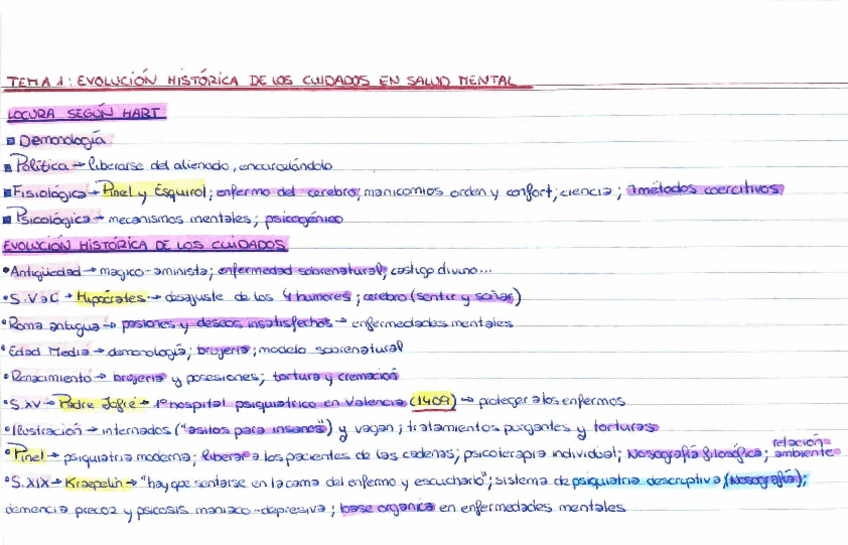 TEMA 1: EVOLUCIÓN HISTÓRICA DE LOS CUIDADOS EN SALUD MENTAL
LOCURA SEGÚN HART
▪ Demonología
▪ Política → liberarse del alienado, encarcelándolo
▪ Fisiológica → Pinel y Esquirol; enfermo del cerebro; manicomios orden y confort; ciencia; métodos coercitivos
▪ Psicológica → mecanismos mentales; psicogénico
EVOLUCIÓN HISTÓRICA DE LOS CUIDADOS
• Antigüedad → magico-aminista; enfermedad sobrenatural, castigo divino...
• S.V aC → Hipócrates → desajuste de los 4 humores; cerebro (sentir y soñar)
• Roma antigua → pasiones y deseos insatisfechos → enfermedades mentales
• Edad Media → demonología; brujería; modelo sobrenatural
• Renacimiento → brujería y posesiones; tortura y cremación
• S.XV → Padre Jofré → 1º hospital psiquiatrico en Valencia (1409) → proteger a los enfermos
• Ilustración → internados ("asilos para insanos") y vagan; tratamientos purgantes y torturas
• Pinel → psiquiatria moderna; liberar a los pacientes de las cadenas; psicoterapia individual; Nosografía filosófica; relación ambiente
• S.XIX → Kraepelin → "hay que sentarse en la cama del enfermo y escucharlo"; sistema de psiquiatria descriptiva (Nosografía);
demencia precoz y psicosis maniaco-depresiva; base organica en enfermedades mentales